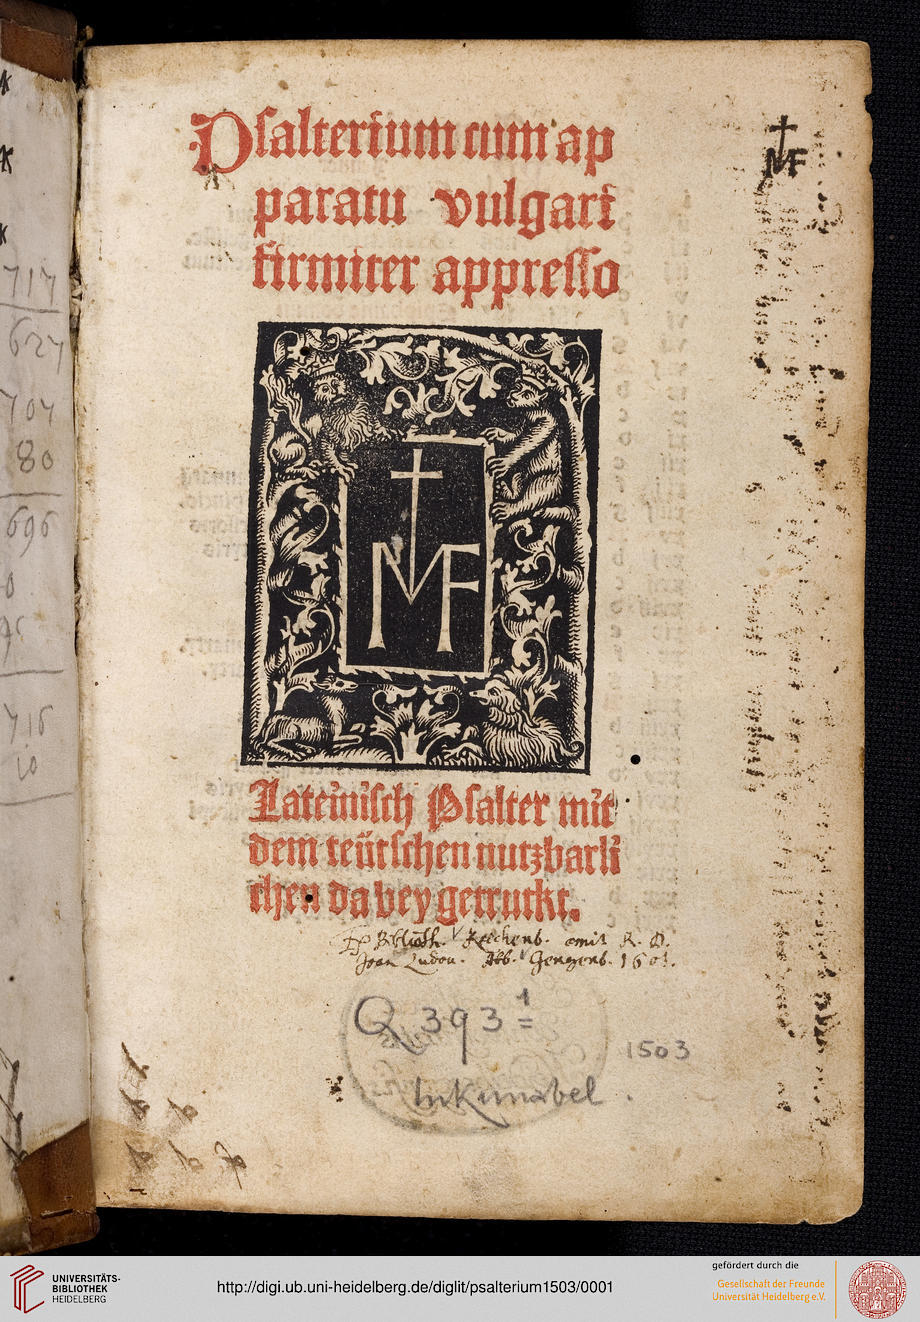 717
627
707
80
696
0
716
10
Psalterium cum ap
paratu vulgari
firmiter appresso
MF
MF
Lateinisch Psalter mit
dem teütschen nutzbarli
chen da bey getruckt.
Ex Biblioth. emit R. D.
Joan Ludou. Abb. Gengenb. 1601.
Q 393 1
1503
Inkunabel.
UNIVERSITÄTS-
BIBLIOTHEK
HEIDELBERG
http://digi.ub.uni-heidelberg.de/diglit/psalterium1503/0001
gefördert durch die
Gesellschaft der Freunde
Universität Heidelberg e.V.